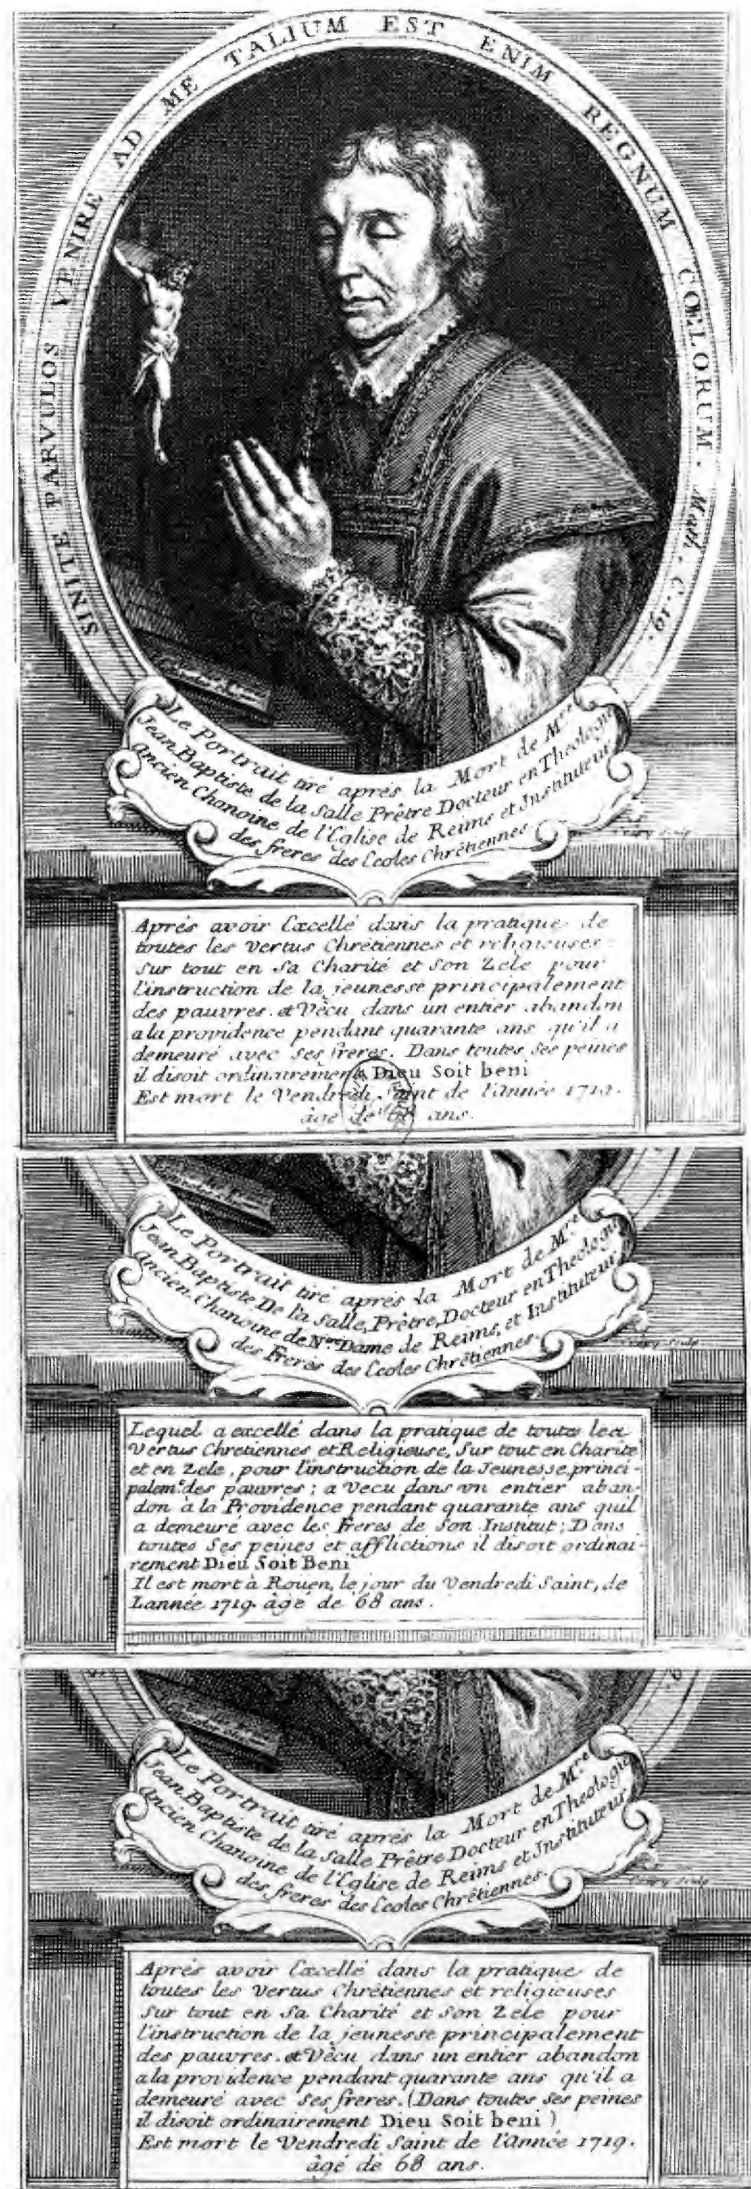 SINITE PARVULOS VENIRE AD ME TALIUM EST ENIM REGNUM CŒLORUM. Math. C. 19.
Le Portrait tiré aprés la Mort de M.re
Jean Baptiste de la Salle Prêtre Docteur en Theologie
ancien Chanoine de l'Eglise de Reims et Instituteur
des freres des Ecoles Chrêtiennes.
Aprés avoir Excellé dans la pratique de
toutes les vertus Chrêtiennes et religieuses
Sur tout en Sa Charité et Son Zele pour
l'instruction de la jeunesse principalement
des pauvres. et Vêcu dans un entier abandon
a la providence pendant quarante ans qu'il a
demeuré avec Ses freres. Dans toutes Ses peines
il disoit ordinairement Dieu Soit beni
Est mort le Vendredi Saint de l'année 1719.
âgé de 68 ans.
Le Portrait tiré aprés la Mort de M.re
Jean Baptiste De la Salle, Prêtre, Docteur en Theologie
ancien Chanoine de N.re Dame de Reims, et Instituteur
des Freres des Ecoles Chrêtiennes.
Lequel a excellé dans la pratique de toutes les
Vertus Chretiennes et Religieuse, Sur tout en Charité
et en Zele, pour l'instruction de la Jeunesse princi-
palem.t des pauvres; a Vecu dans vn entier aban-
don à la Providence pendant quarante ans quil
a demeuré avec les Freres de Son Institut; Dans
toutes Ses peines et afflictions il disoit ordinai-
rement Dieu Soit Beni
Il est mort à Rouen, le jour du Vendredi Saint, de
Lannée 1719. âgé de 68 ans.
Le Portrait tiré aprés la Mort de M.re
Jean Baptiste de la Salle Prêtre Docteur en Theologie
ancien Chanoine de l'Eglise de Reims et Instituteur
des freres des Ecoles Chrêtiennes.
Aprés avoir Excellé dans la pratique de
toutes les vertus Chrêtiennes et religieuses
Sur tout en Sa Charité et Son Zele pour
l'instruction de la jeunesse principalement
des pauvres. et Vêcu dans un entier abandon
a la providence pendant quarante ans qu'il a
demeuré avec Ses freres. (Dans toutes Ses peines
il disoit ordinairement Dieu Soit beni)
Est mort le Vendredi Saint de l'année 1719.
âgé de 68 ans.